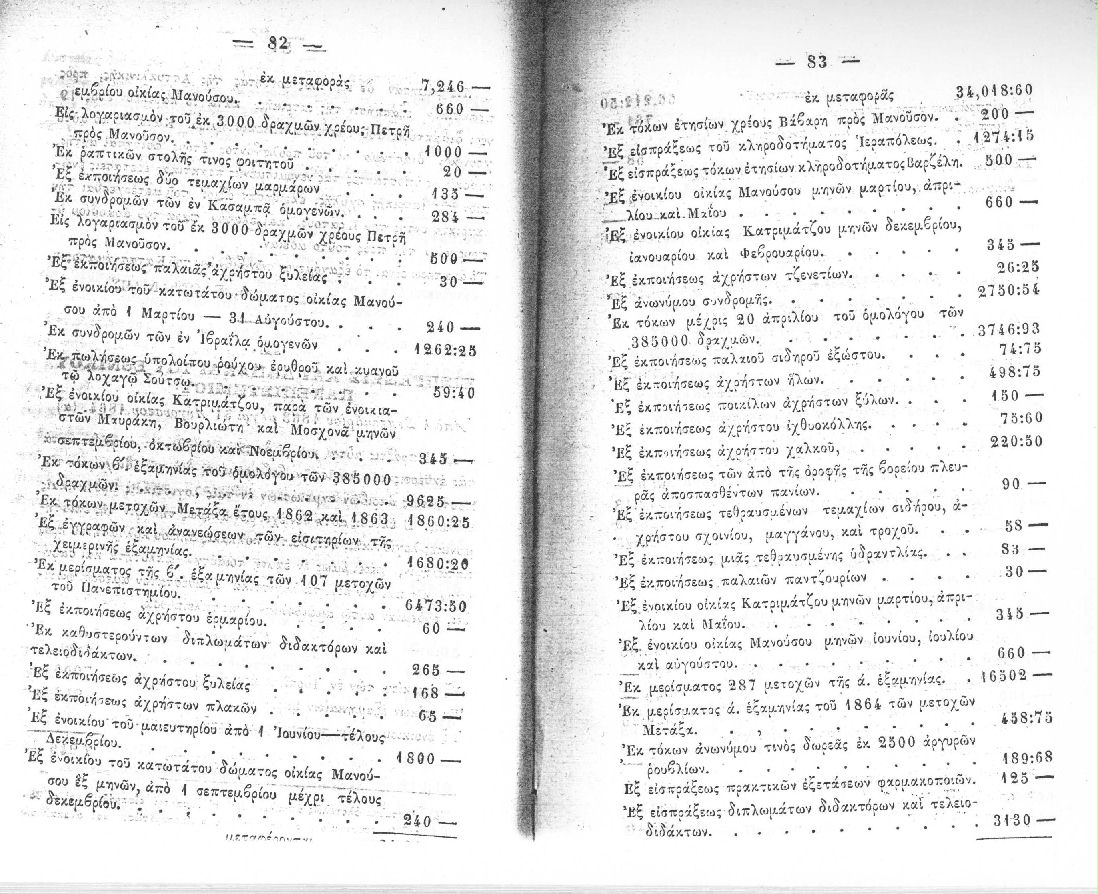 — 82 —
ἐκ μεταφορᾶς 7,246 —
εμβρίου οἰκίας Μανούσου. . . . . . . 660 —
Εἰς λογαριασμὸν τοῦ ἐκ 3000 δραχμῶν χρέους Πετρῆ
πρὸς Μανοῦσον. . . . . . . . . 1000 —
Ἐκ ῥαπτικῶν στολῆς τινος φοιτητοῦ . . . . 20 —
Ἐξ ἐκποιήσεως δύο τεμαχίων μαρμάρων . . . 135 —
Ἐκ συνδρομῶν τῶν ἐν Κασαμπᾷ ὁμογενῶν. . . . 284 —
Εἰς λογαριασμὸν τοῦ ἐκ 3000 δραχμῶν χρέους Πετρῆ
πρὸς Μανοῦσον. . . . . . . . . 500 —
Ἐξ ἐκποιήσεως παλαιᾶς ἀχρήστου ξυλείας . . . 30 —
Ἐξ ἐνοικίου τοῦ κατωτάτου δώματος οἰκίας Μανού-
σου ἀπὸ 1 Μαρτίου — 31 Αὐγούστου. . . . 240 —
Ἐκ συνδρομῶν τῶν ἐν Ἰβραΐλᾳ ὁμογενῶν . . . 1262:25
Ἐκ πωλήσεως ὑπολοίπου ῥούχου ἐρυθροῦ καὶ κυανοῦ
τῷ λοχαγῷ Σούτσῳ. . . . . . . . 59:40
Ἐξ ἐνοικίου οἰκίας Κατριμάτζου, παρὰ τῶν ἐνοικια-
στῶν Μαυράκη, Βουρλιώτη καὶ Μοσχονᾶ μηνῶν
σεπτεμβρίου, ὀκτωβρίου καὶ Νοεμβρίου. . . . 345 —
Ἐκ τόκων β΄ ἑξαμηνίας τοῦ ὁμολόγου τῶν 385000
δραχμῶν. . . . . . . . . . 9625 —
Ἐκ τόκων μετοχῶν Μετάξα ἔτους 1862 καὶ 1863 1860:25
Ἐξ ἐγγραφῶν καὶ ἀνανεώσεων τῶν εἰσιτηρίων τῆς
χειμερινῆς ἑξαμηνίας. . . . . . . . 1680:20
Ἐκ μερίσματος τῆς β΄. ἑξαμηνίας τῶν 107 μετοχῶν
τοῦ Πανεπιστημίου. . . . . . . . 6473:50
Ἐξ ἐκποιήσεως ἀχρήστου ἑρμαρίου. . . . . 60 —
Ἐκ καθυστερούντων διπλωμάτων διδακτόρων καὶ
τελειοδιδάκτων. . . . . . . . . 265 —
Ἐξ ἐκποιήσεως ἀχρήστου ξυλείας . . . . . 168 —
Ἐξ ἐκποιήσεως ἀχρήστων πλακῶν . . . . . 65 —
Ἐξ ἐνοικίου τοῦ μαιευτηρίου ἀπὸ 1 Ἰουνίου—τέλους
Δεκεμβρίου. . . . . . . . . . 1800 —
Ἐξ ἐνοικίου τοῦ κατωτάτου δώματος οἰκίας Μανού-
σου ἓξ μηνῶν, ἀπὸ 1 σεπτεμβρίου μέχρι τέλους
δεκεμβρίου. . . . . . . . . . 240 —
— 83 —
ἐκ μεταφορᾶς 34,018:60
Ἐκ τόκων ἐτησίων χρέους Βάβαρη πρὸς Μανοῦσον. . 200 —
Ἐξ εἰσπράξεως τοῦ κληροδοτήματος Ἱεραπόλεως. . 1274:15
Ἐξ εἰσπράξεως τόκων ἐτησίων κληροδοτήματος Βαρζέλη. 500 —
Ἐξ ἐνοικίου οἰκίας Μανούσου μηνῶν μαρτίου, ἀπρι-
λίου καὶ Μαΐου . . . . . . . . . 660 —
Ἐξ ἐνοικίου οἰκίας Κατριμάτζου μηνῶν δεκεμβρίου,
ἰανουαρίου καὶ Φεβρουαρίου. . . . . . 345 —
Ἐξ ἐκποιήσεως ἀχρήστων τζενετίων. . . . . 26:25
Ἐξ ἀνωνύμου συνδρομῆς. . . . . . . . 2750:54
Ἐκ τόκων μέχρις 20 ἀπριλίου τοῦ ὁμολόγου τῶν
385000 δραχμῶν. . . . . . . . . 3746:93
Ἐξ ἐκποιήσεως παλαιοῦ σιδηροῦ ἐξώστου. . . . 74:75
Ἐξ ἐκποιήσεως ἀχρήστων ἥλων. . . . . . 498:75
Ἐξ ἐκποιήσεως ποικίλων ἀχρήστων ξύλων. . . . 150 —
Ἐξ ἐκποιήσεως ἀχρήστου ἰχθυοκόλλης. . . . . 75:60
Ἐξ ἐκποιήσεως ἀχρήστου χαλκοῦ, . . . . . 220:50
Ἐξ ἐκποιήσεως τῶν ἀπὸ τῆς ὀροφῆς τῆς βορείου πλευ-
ρᾶς ἀποσπασθέντων πανίων. . . . . . . 90 —
Ἐξ ἐκποιήσεως τεθραυσμένων τεμαχίων σιδήρου, ἀ-
χρήστου σχοινίου, μαγγάνου, καὶ τροχοῦ. . . . 58 —
Ἐξ ἐκποιήσεως μιᾶς τεθραυσμένης ὑδραντλίας. . . 83 —
Ἐξ ἐκποιήσεως παλαιῶν παντζουρίων . . . . 30 —
Ἐξ ἐνοικίου οἰκίας Κατριμάτζου μηνῶν μαρτίου, ἀπρι-
λίου καὶ Μαΐου. . . . . . . . . 345 —
Ἐξ ἐνοικίου οἰκίας Μανούσου μηνῶν ἰουνίου, ἰουλίου
καὶ αὐγούστου. . . . . . . . . . 660 —
Ἐκ μερίσματος 287 μετοχῶν τῆς ά. ἑξαμηνίας. . 16502 —
Ἐκ μερίσματος ά. ἑξαμηνίας τοῦ 1864 τῶν μετοχῶν
Μετάξα. . . . . . . . . . . 458:75
Ἐκ τόκων ἀνωνύμου τινὸς δωρεᾶς ἐκ 2500 ἀργυρῶν
ῥουβλίων. . . . . . . . . . . 189:68
Ἐξ εἰσπράξεως πρακτικῶν ἐξετάσεων φαρμακοποιῶν. 125 —
Ἐξ εἰσπράξεως διπλωμάτων διδακτόρων καὶ τελειο-
διδάκτων. . . . . . . . . . . 3130 —